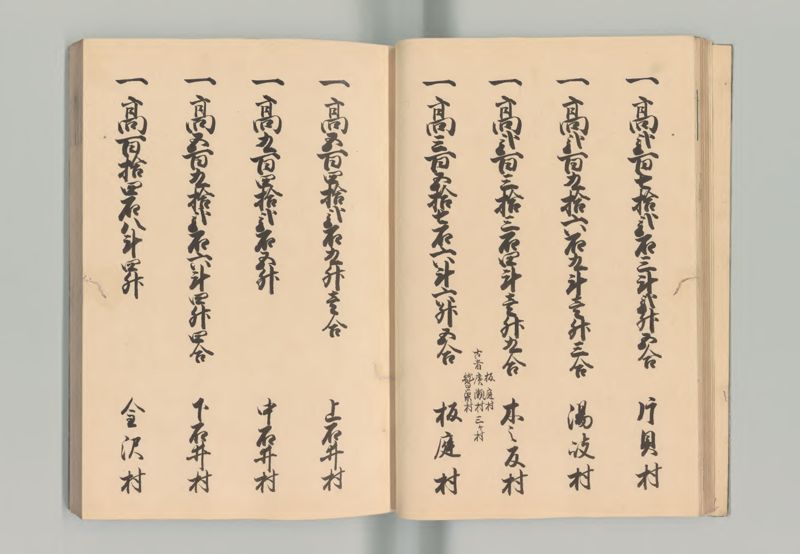 一高弐百七拾弐石三斗弐升五合 片貝村
一高弐百九拾六石九斗壱升三合 湯岐村
一高弐百三拾三石四斗壱升九合 木之反村
板庭村
古者廣瀬村三ヶ村
一高三百五拾七石六斗六升五合 板庭村
一高五百四拾弐石九升壱合 上石井村
一高九百四拾弐石五升 中石井村
一高五百九拾弐石六斗四升四合 下石井村
一高百拾四石八斗四升 金沢村